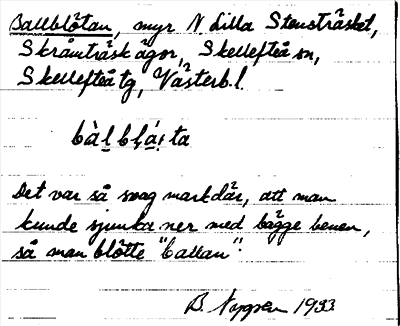 Ballblötan, myr N Lilla Stensträsket,
Skråmträsk ägor, Skellefteå sn,
Skellefteå tg, Västerb. l.
bàlblá:ta
Det var så svag mark där, att man
kunde sjunka ner med bägge benen,
så man blötte "ballan".
B. 1933